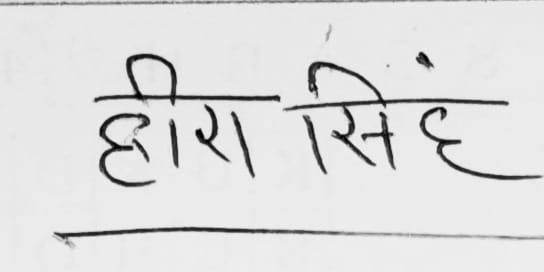 हीरा सिंह